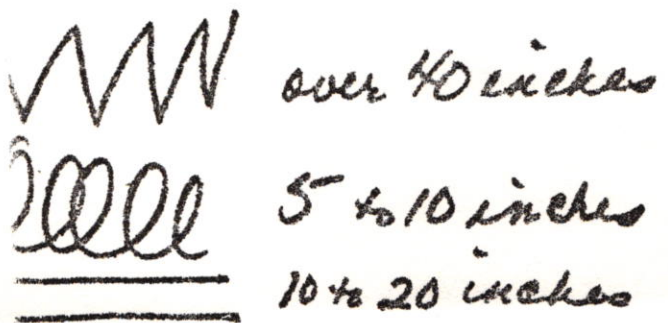 over 40 inches
5 to 10 inches
10 to 20 inches